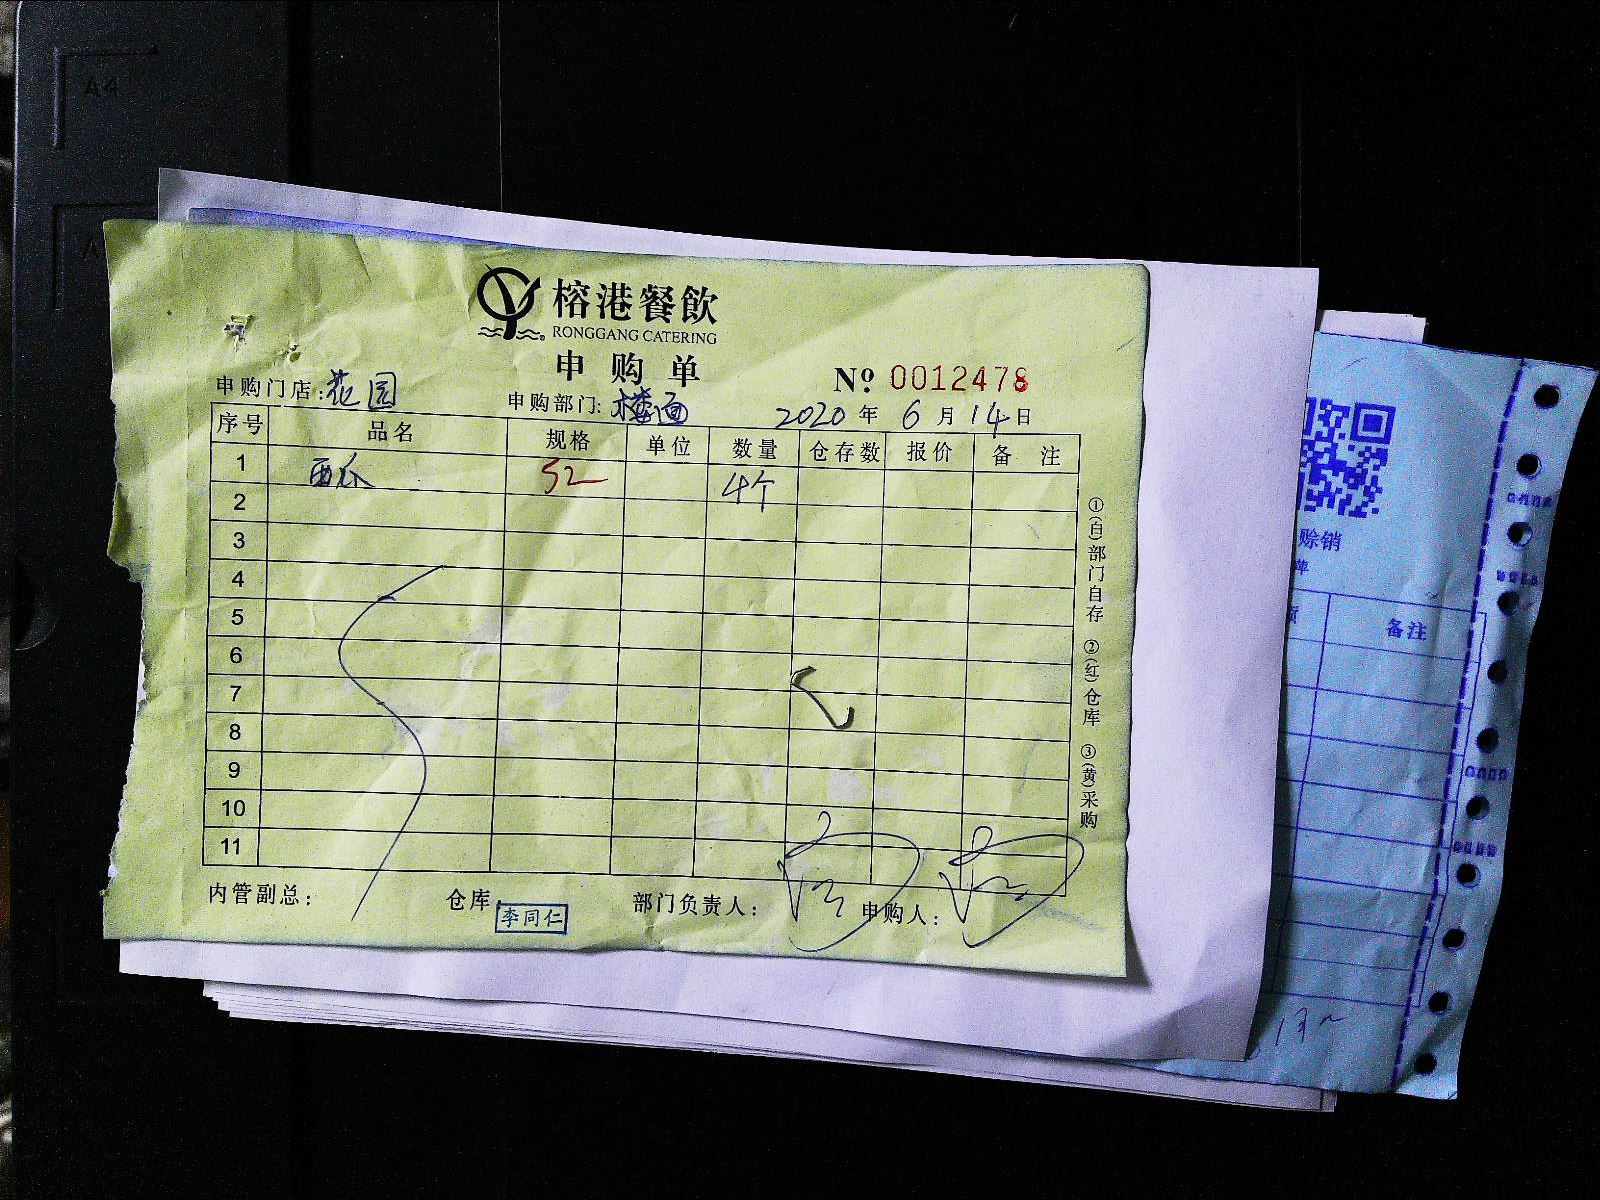 A4
榕港餐飲
RONGGANG CATERING
申购单
№ 0012478
申购门店:花园 申购部门:楼面 2020年6月14日
序号 品名 规格 单位 数量 仓存数 报价 备注
1 西瓜 52 4个
2
3
4
5
6
7
8
9
10
11
内管副总: 仓库: 李同仁 部门负责人: 申购人:
①(白)部门自存 ②(红)仓库 ③(黄)采购
赊销
备注